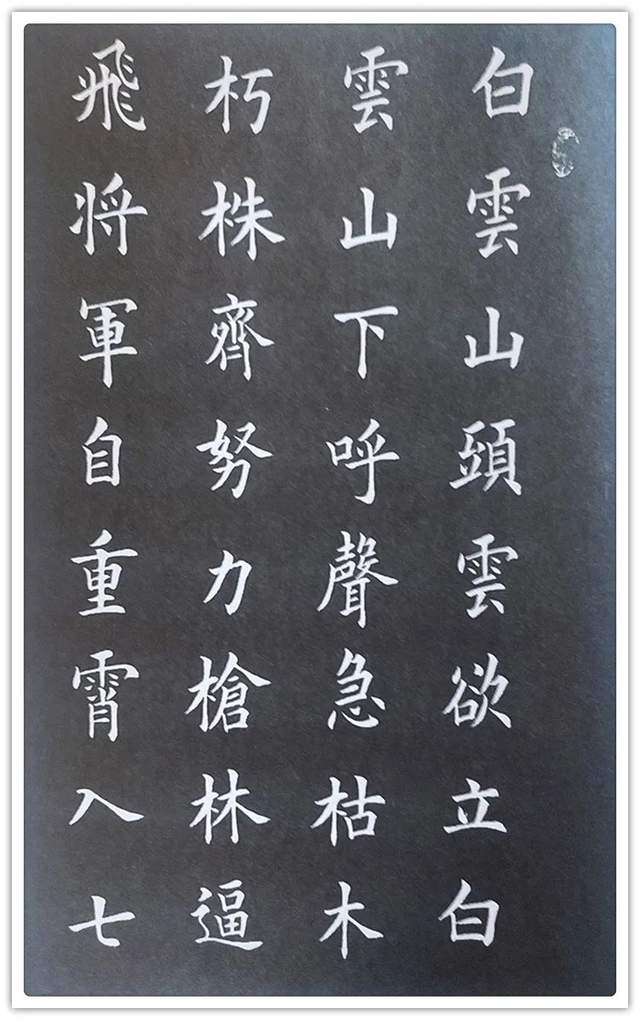 白雲山頭雲欲立白
雲山下呼聲急枯木
朽株齊努力槍林逼
飛将軍自重霄入七